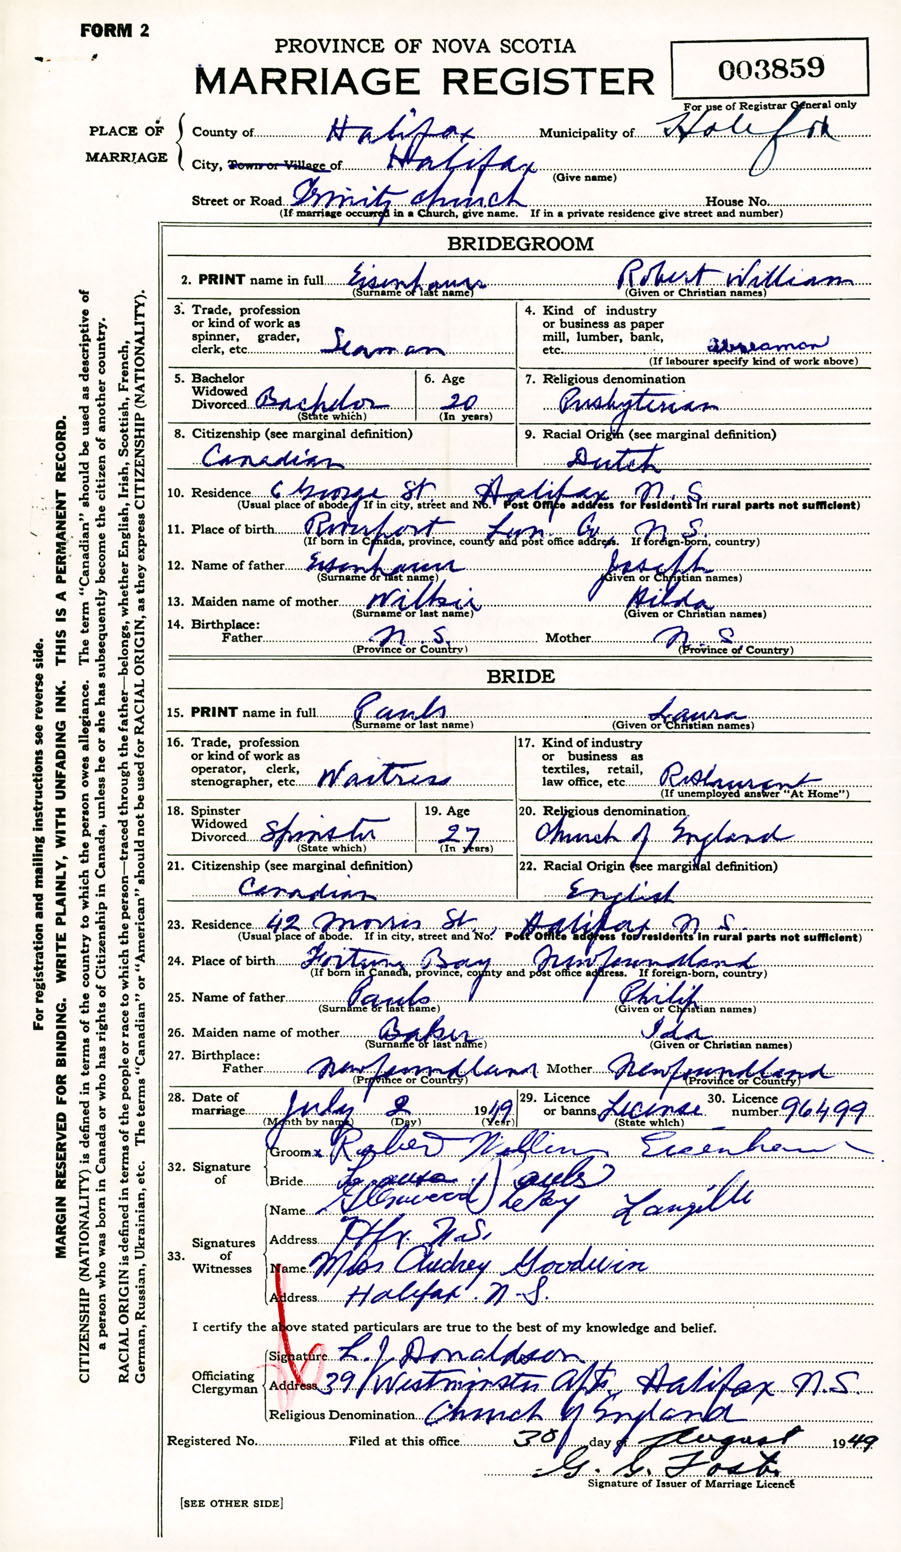 FORM 2
PROVINCE OF NOVA SCOTIA
MARRIAGE REGISTER
003859
For use of Registrar General only
PLACE OF MARRIAGE
County of Halifax Municipality of Halifax
City, Town or Village of Halifax
(Give name)
Street or Road Trinity Church House No.
(If marriage occurred in a Church, give name. If in a private residence give street and number)
BRIDEGROOM
2. PRINT name in full Eisenhauer Robert William
(Surname or last name) (Given or Christian names)
3. Trade, profession or kind of work as spinner, grader, clerk, etc. Seaman
4. Kind of industry or business as paper mill, lumber, bank, etc.
(If labourer specify kind of work above)
5. Bachelor Widowed Divorced Bachelor
(State which)
6. Age 20
(In years)
7. Religious denomination
Presbyterian
8. Citizenship (see marginal definition)
Canadian
9. Racial Origin (see marginal definition)
Dutch
10. Residence 6 George St. Halifax N.S.
(Usual place of abode. If in city, street and No. Post Office address for residents in rural parts not sufficient)
11. Place of birth Riverport Lun. Co. N.S.
(If born in Canada, province, county and post office address. If foreign-born, country)
12. Name of father Eisenhauer Joseph
(Surname or last name) (Given or Christian names)
13. Maiden name of mother Wilkie Hilda
(Surname or last name) (Given or Christian names)
14. Birthplace:
Father N.S. Mother N.S
(Province or Country) (Province or Country)
BRIDE
15. PRINT name in full Pauls Laura
(Surname or last name) (Given or Christian names)
16. Trade, profession or kind of work as operator, clerk, stenographer, etc. Waitress
17. Kind of industry or business as textiles, retail, law office, etc. Restaurant
(If unemployed answer "At Home")
18. Spinster Widowed Divorced Spinster
(State which)
19. Age 27
(In years)
20. Religious denomination
Church of England
21. Citizenship (see marginal definition)
Canadian
22. Racial Origin (see marginal definition)
English
23. Residence 42 Morris St., Halifax N.S.
(Usual place of abode. If in city, street and No. Post Office address for residents in rural parts not sufficient)
24. Place of birth Fortune Bay Newfoundland
(If born in Canada, province, county and post office address. If foreign-born, country)
25. Name of father Pauls Philip
(Surname or last name) (Given or Christian names)
26. Maiden name of mother Baker Ida
(Surname or last name) (Given or Christian names)
27. Birthplace:
Father Newfoundland Mother Newfoundland
(Province or Country) (Province or Country)
28. Date of marriage July 2 1949
(Month by name) (Day) (Year)
29. Licence or banns License
(State which)
30. Licence number 96499
32. Signature of
Groom x Robert William Eisenhauer
Bride Laura Pauls
33. Signatures of Witnesses
Name Glenwood LeRoy Langille
Address Hfx. N.S.
Name Miss Audrey Goodwin
Address Halifax. N.S.
I certify the above stated particulars are true to the best of my knowledge and belief.
Officiating Clergyman
Signature L. J. Donaldson
Address 39 Westminster Apts, Halifax N.S.
Religious Denomination Church of England
Registered No. Filed at this office 30 day of August 1949
G. G. Foster
Signature of Issuer of Marriage Licence
[SEE OTHER SIDE]
For registration and mailing instructions see reverse side.
MARGIN RESERVED FOR BINDING. WRITE PLAINLY, WITH UNFADING INK. THIS IS A PERMANENT RECORD.
CITIZENSHIP (NATIONALITY) is defined in terms of the country to which the person owes allegiance. The term "Canadian" should be used as descriptive of
a person who was born in Canada or who has rights of Citizenship in Canada, unless he or she has subsequently become the citizen of another country.
RACIAL ORIGIN is defined in terms of the people or race to which the person—traced through the father—belongs, whether English, Irish, Scottish, French,
German, Russian, Ukrainian, etc. The terms "Canadian" or "American" should not be used for RACIAL ORIGIN, as they express CITIZENSHIP (NATIONALITY).